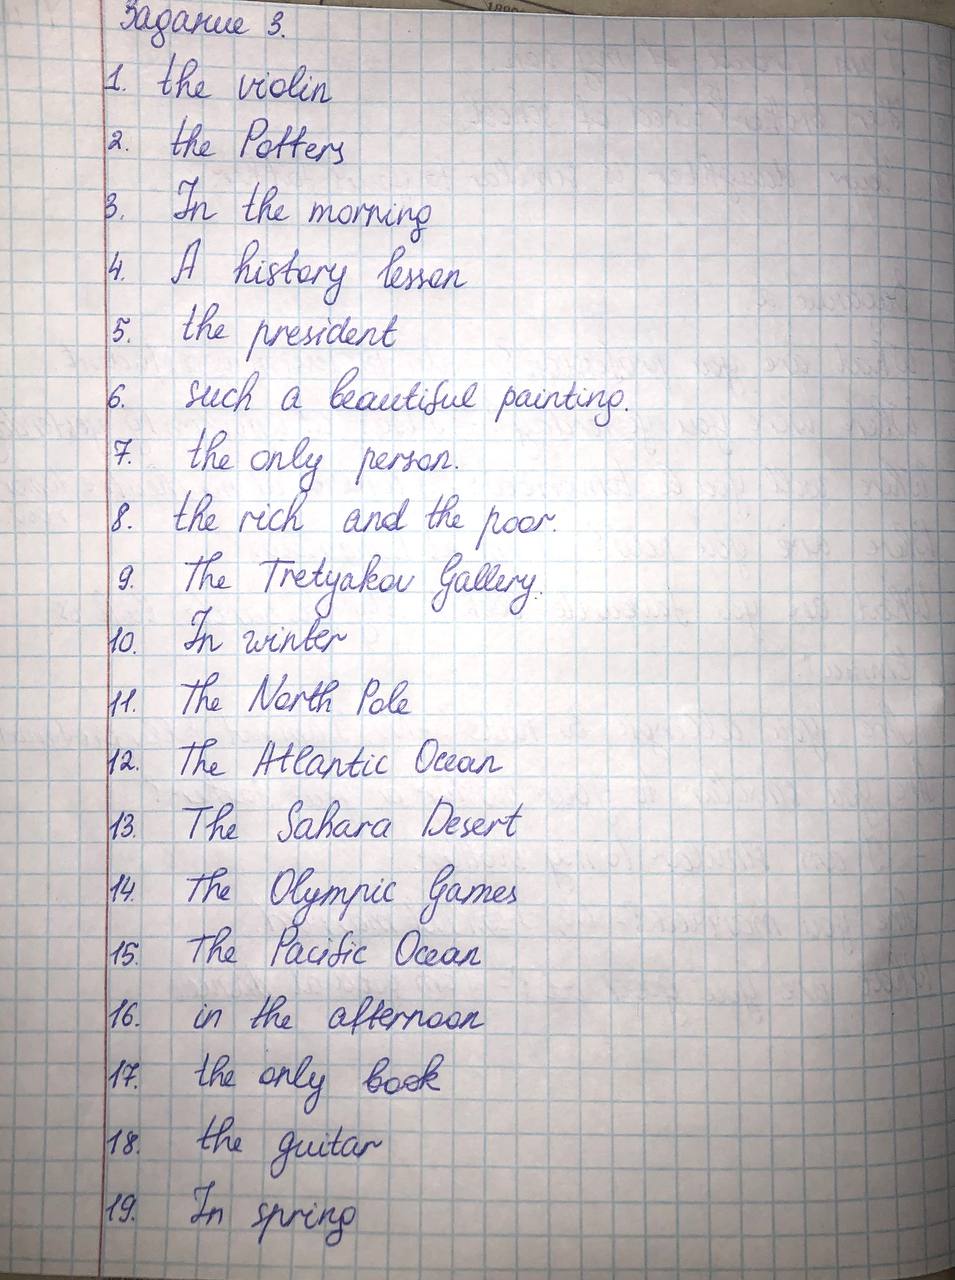 Задание 3.
1. the violin
2. the Potters
3. In the morning
4. A history lesson
5. the president
6. such a beautiful painting.
7. the only person.
8. the rich and the poor.
9. The Tretyakov Gallery.
10. In winter
11. The North Pole
12. The Atlantic Ocean
13. The Sahara Desert
14. The Olympic Games
15. The Pacific Ocean
16. in the afternoon
17. the only book
18. the guitar
19. In spring